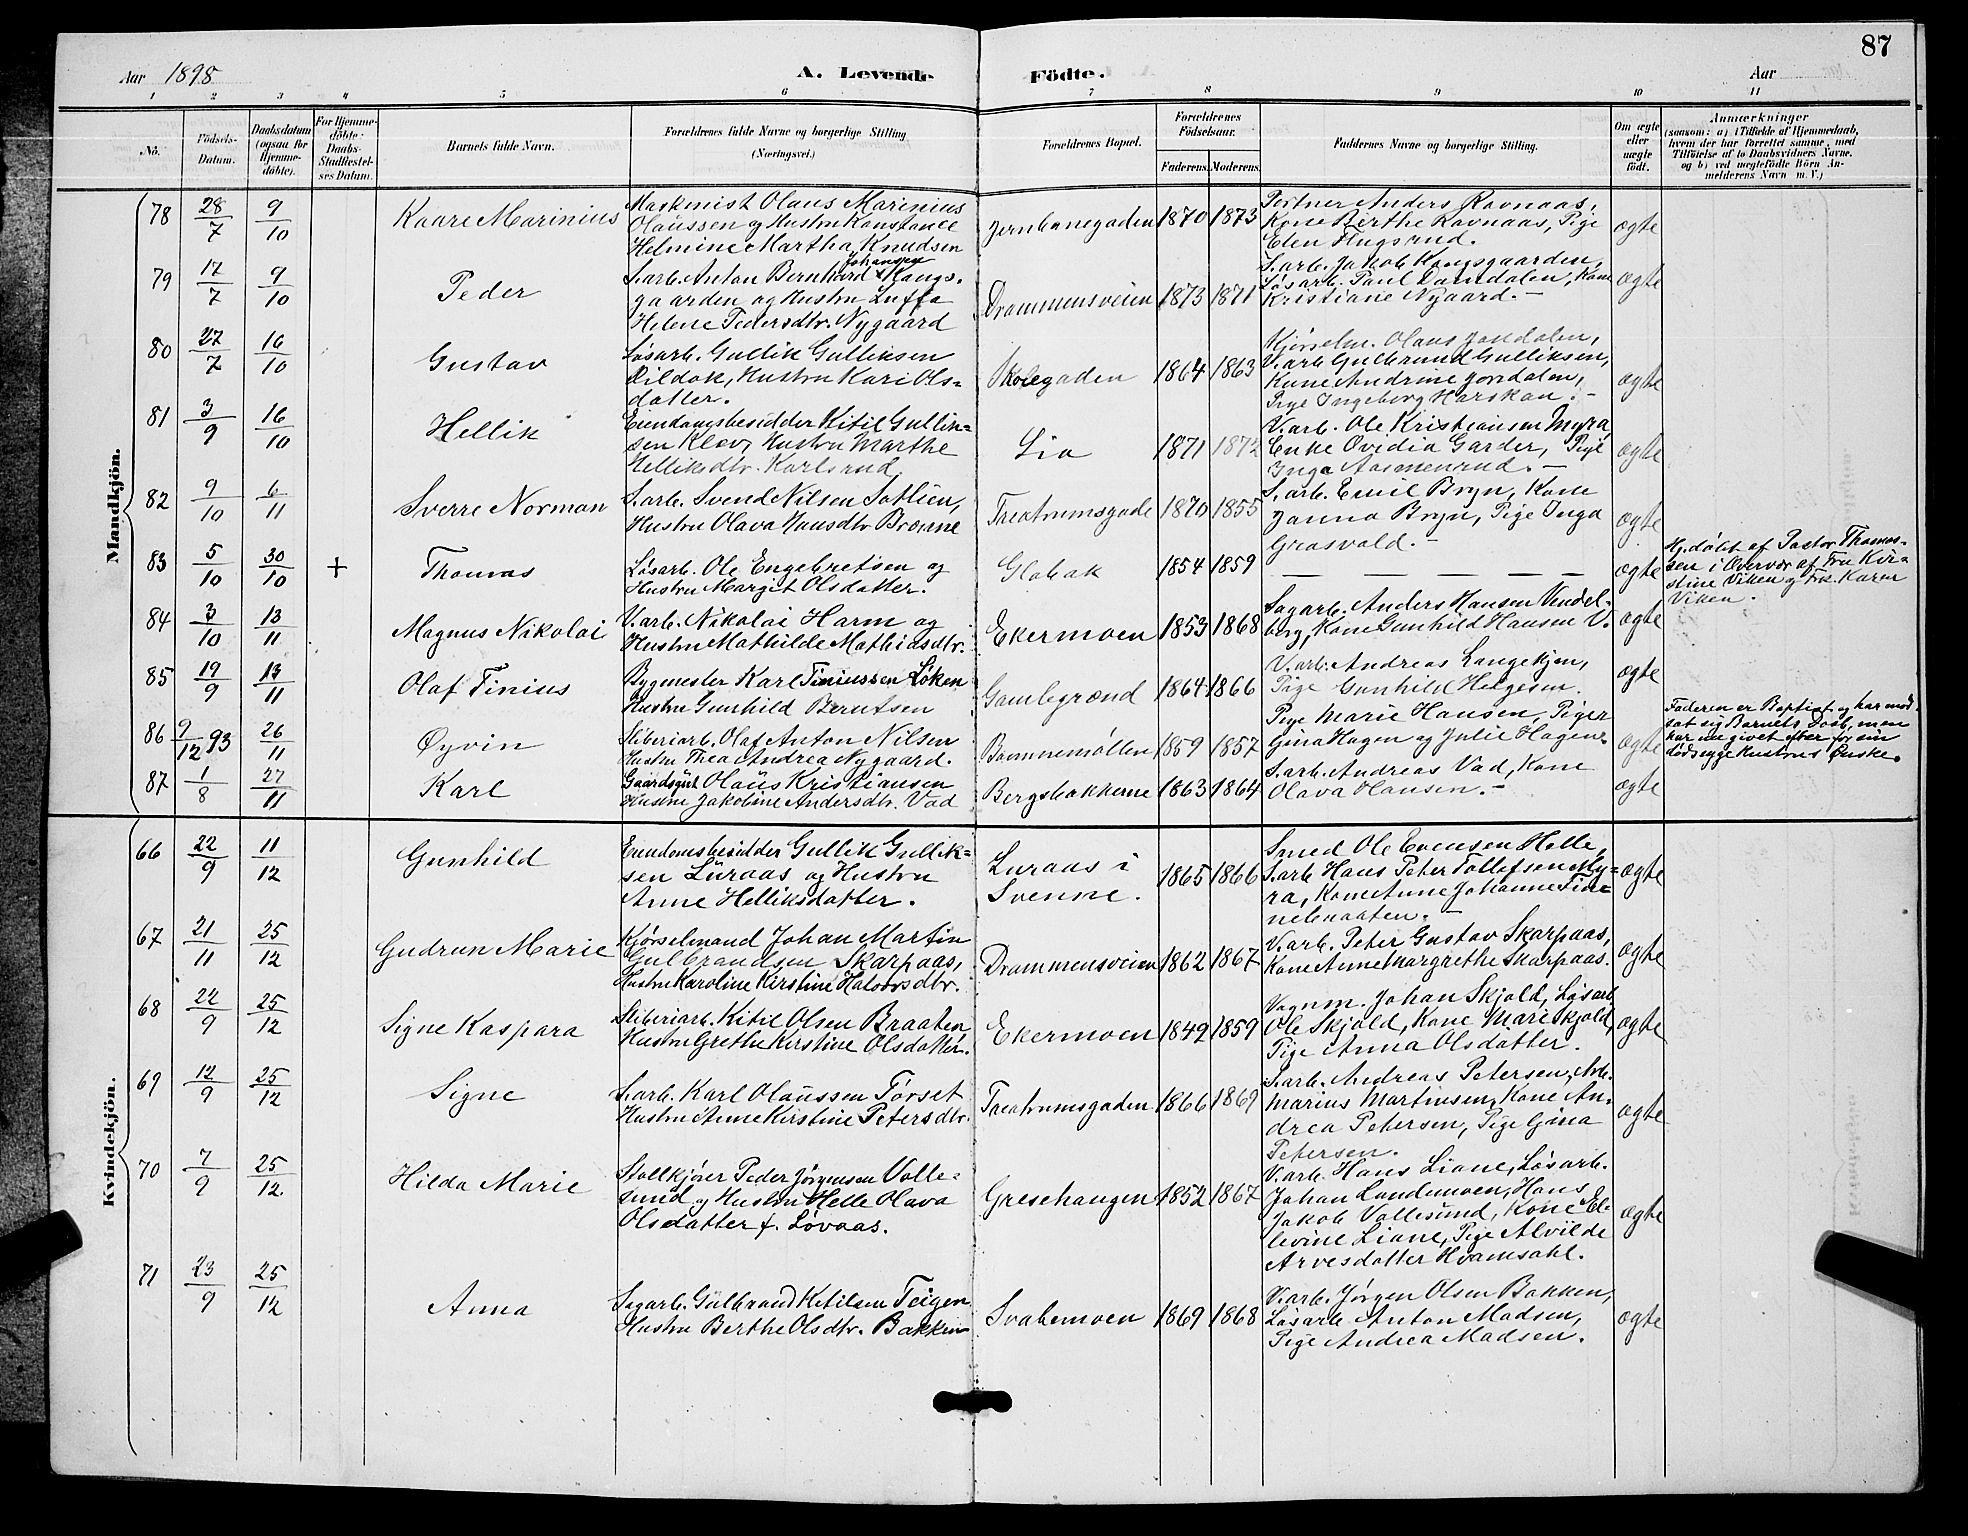 87
Aar 1898
A. Levende Födte.
Aar
1 2 3 4 5 6 7 8 9 10 11
No.
Födsels-Datum.
Daabsdatum (ogsaa for Hjemmedöbte).
For Hjemmedöbte: Daabs-Stadfæstelses Datum.
Barnets fulde Navn.
Forældrenes fulde Navne og borgerlige Stilling (Næringsvei.)
Forældrenes Bopæl.
Forældrenes Födselsaar.
Faderens. Moderens.
Faddernes Navne og borgerlige Stilling.
Om ægte eller uægte födt.
Anmærkninger
(saasom: a) i Tilfælde af Hjemmedaab, hvem der har forrettet samme, med Tilföielse af to Daabsvidners Navne. og b) ved uægtefödte Börn Anmelderens Navn m. V.)
Mandkjön.
78 28/7 9/10 Kaare Marinius
Maskinist Olaus Marinius
Olaussen og Hustru Konstance
Helmine Martha Knudsen
Jernbanegaden 1870 1873
Portner Anders Ravnaas,
Kone Berthe Ravnaas, Pige
Elen Flugsrud.
ægte
79 17/7 9/10 Peder
Johansen
S.arb. Anton Bernhard Kongs-
gaarden og Hustru Luffa
Helene Pedersdtr. Nygaard
Drammensveien 1873 1871
S.arb. Jakob Kongsgaarden,
Løsarb. Paul Damdalen, Kone
Kristiane Nygaard. —
ægte
80 27/7 16/10 Gustav
Løsarb. Gullik Gulliksen
Dildok, Hustru Kari Ols=
datter.
Skolegaden 1864 1863
Kjørselm. Olaus Jondalen,
V.arb. Gulbrand Gulliksen,
Kone Andrine Jondalen,
Pige Ingeborg Horskan. —
ægte
81 3/9 16/10 Hellik
Eiendomsbesidder Kitil Gullik-
sen Klev, Hustru Marthe
Helliksdtr. Karlsrud
Lia 1871 1872
V.arb. Ole Kristiansen Myra
Enke Ovidia Garder, Pige
Inga Aasmenrud. —
ægte
82 9/10 6/11 Sverre Norman
S.arb. Svend Nilsen Sotlien,
Hustru Olava Hansdtr Brønne
Theatrumsgade 1870 1855
S.arb. Emil Bryn, Kone
Janna Bryn, Pige Inga
Grosvold. —
ægte
83 5/10 30/10 + Thomas
Løsarb. Ole Engebretsen og
Hustru Marget Olsdatter.
Glabak 1854 1859
— — — — — —
ægte
Hj.døbt af Pastor Thomas-
sen i Overvær af Fru Kir-
stine Viken og Frk. Karen
Viken.
84 3/10 13/11 Magnus Nikolai
V.arb. Nikolai Harm og
Hustru Mathilde Mathiasdtr.
Ekermoen 1853 1868
Sagarb. Anders Hansen Vindel-
borg, Kone Gunhild Hansen V.
ægte
85 19/9 13/11 Olaf Tinius
Bygmester Karl Tiniussen Løken
Hustru Gunhild Berntsen
Gamlegrænd 1864 1866
V.arb. Andreas Langekjen,
Pige Gunhild Helgesen.
ægte
86 9/12 93 26/11 Øyvin
Sliberiarb. Olaf Anton Nilsen
Hustru Thea Andrea Nygaard.
Brønnemøllen 1859 1857
Pige Marie Hansen, Piger
Gina Hagen og Julie Hagen.
ægte
Faderen er Baptist og har mod-
sat sig Barnets Daab, men
har nu givet efter for sin
dødssyge Hustrus Ønske.
87 1/8 27/11 Karl
Gaardsgut Olaus Kristiansen
Hustru Jakobine Andersdtr. Vad
Bergsbakkerne 1863 1864
S.arb. Andreas Vad, Kone
Olava Olausen. —
ægte
Kvindekjön.
66 22/9 11/12 Gunhild
Eiendomsbesidder Gullik Gullik=
sen Luraas og Hustru
Anne Helliksdatter.
Luraas i
Svenne.
1865 1866
Smed Ole Evensen Helle,
S.arb. Hans Peter Tollefsen My=
ra, Kone Anne Johanne Tin=
nebraaten. —
ægte
67 21/11 25/12 Gudrun Marie
Kjørselmand Johan Martin
Gulbrandsen Skarpaas,
Hustru Karoline Kirstine Halvorsdtr.
Drammensveien 1862 1867
V.arb. Peter Gustav Skarpaas,
Kone Anne Margrethe Skarpaas.
ægte
68 22/9 25/12 Signe Kaspara
Sliberiarb. Kitil Olsen Braaten
Hustru Grethe Kirstine Olsdatter.
Ekermoen 1849 1859
Vognm. Johan Skjold, Løsarb.
Ole Skjold, Kone Mari Skjold,
Pige Anna Olsdatter.
ægte
69 12/9 25/12 Signe
S.arb. Karl Olaussen Tørset
Hustru Anne Kirstine Petersdtr.
Theatrumsgaden 1866 1869
S.arb. Andreas Petersen, Arb.
Marius Martinsen, Kone An-
drea Petersen, Pige Gina
Petersen.
ægte
70 7/9 25/12 Hilda Marie
Stallkjører Peder Jørgensen Volle-
sund og Hustru Helle Olava
Olsdatter f. Løvaas.
Gresehaugen 1852 1867
V.arb. Hans Liane, Løsarb.
Johan Lundemoen, Hans
Jakob Vollesund, Kone El-
levine Liane, Pige Alvilde
Arvesdatter Hvamsahl.
ægte
71 23/9 25/12 Anna
Sagarb. Gulbrand Ketilsen Teigen
Hustru Berthe Olsdtr. Bakken
Svabemoen 1869 1868
V.arb. Jørgen Olsen Bakken,
Løsarb. Anton Madsen,
Pige Andrea Madsen.
ægte